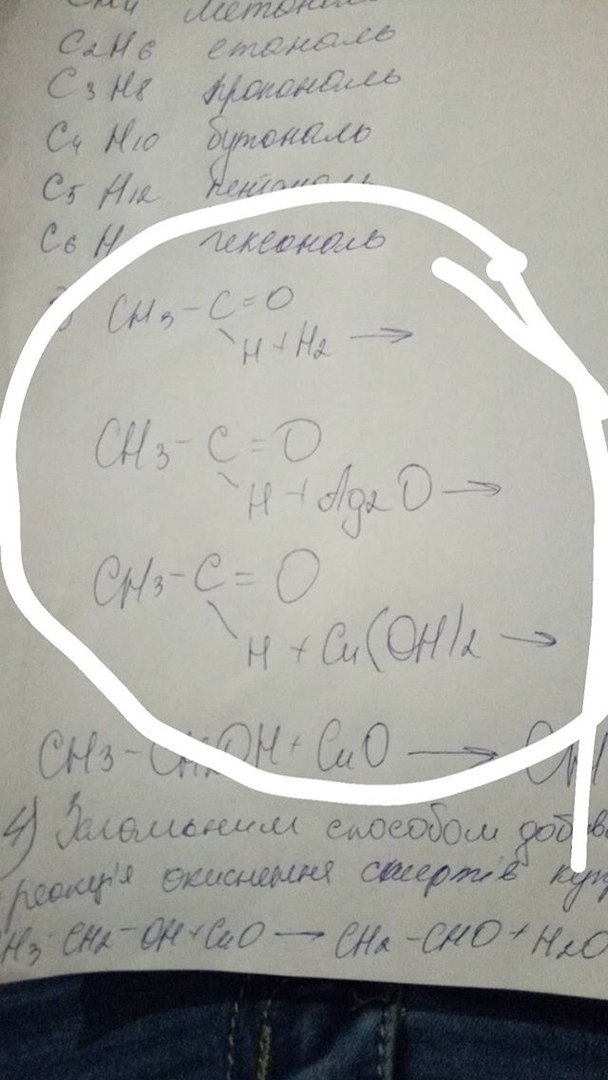 CH4 метональ
C2H6 етональ
C3H8 пропональ
C4H10 бутональ
C5H12 пентональ
C6H гексональ
3) CH3-C=O
H+H2 →
CH3-C=O
H+Ag2O →
CH3-C=O
H+Cu(OH)2 →
CH3-CH2OH+CuO → CH
4) Загальним способом добув
реакція окиснення спиртів куп
H3-CH2-OH+CuO → CH2-CHO+H2O